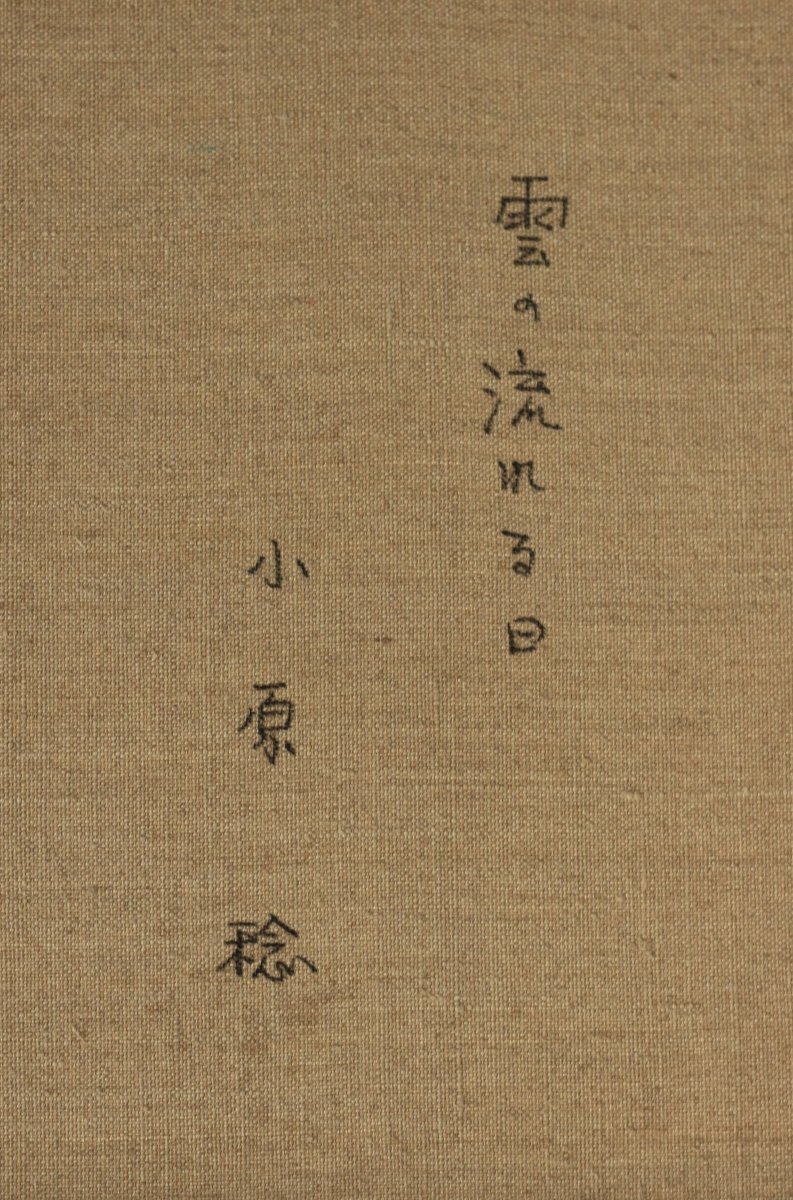 雲の流れる日
小原 稔